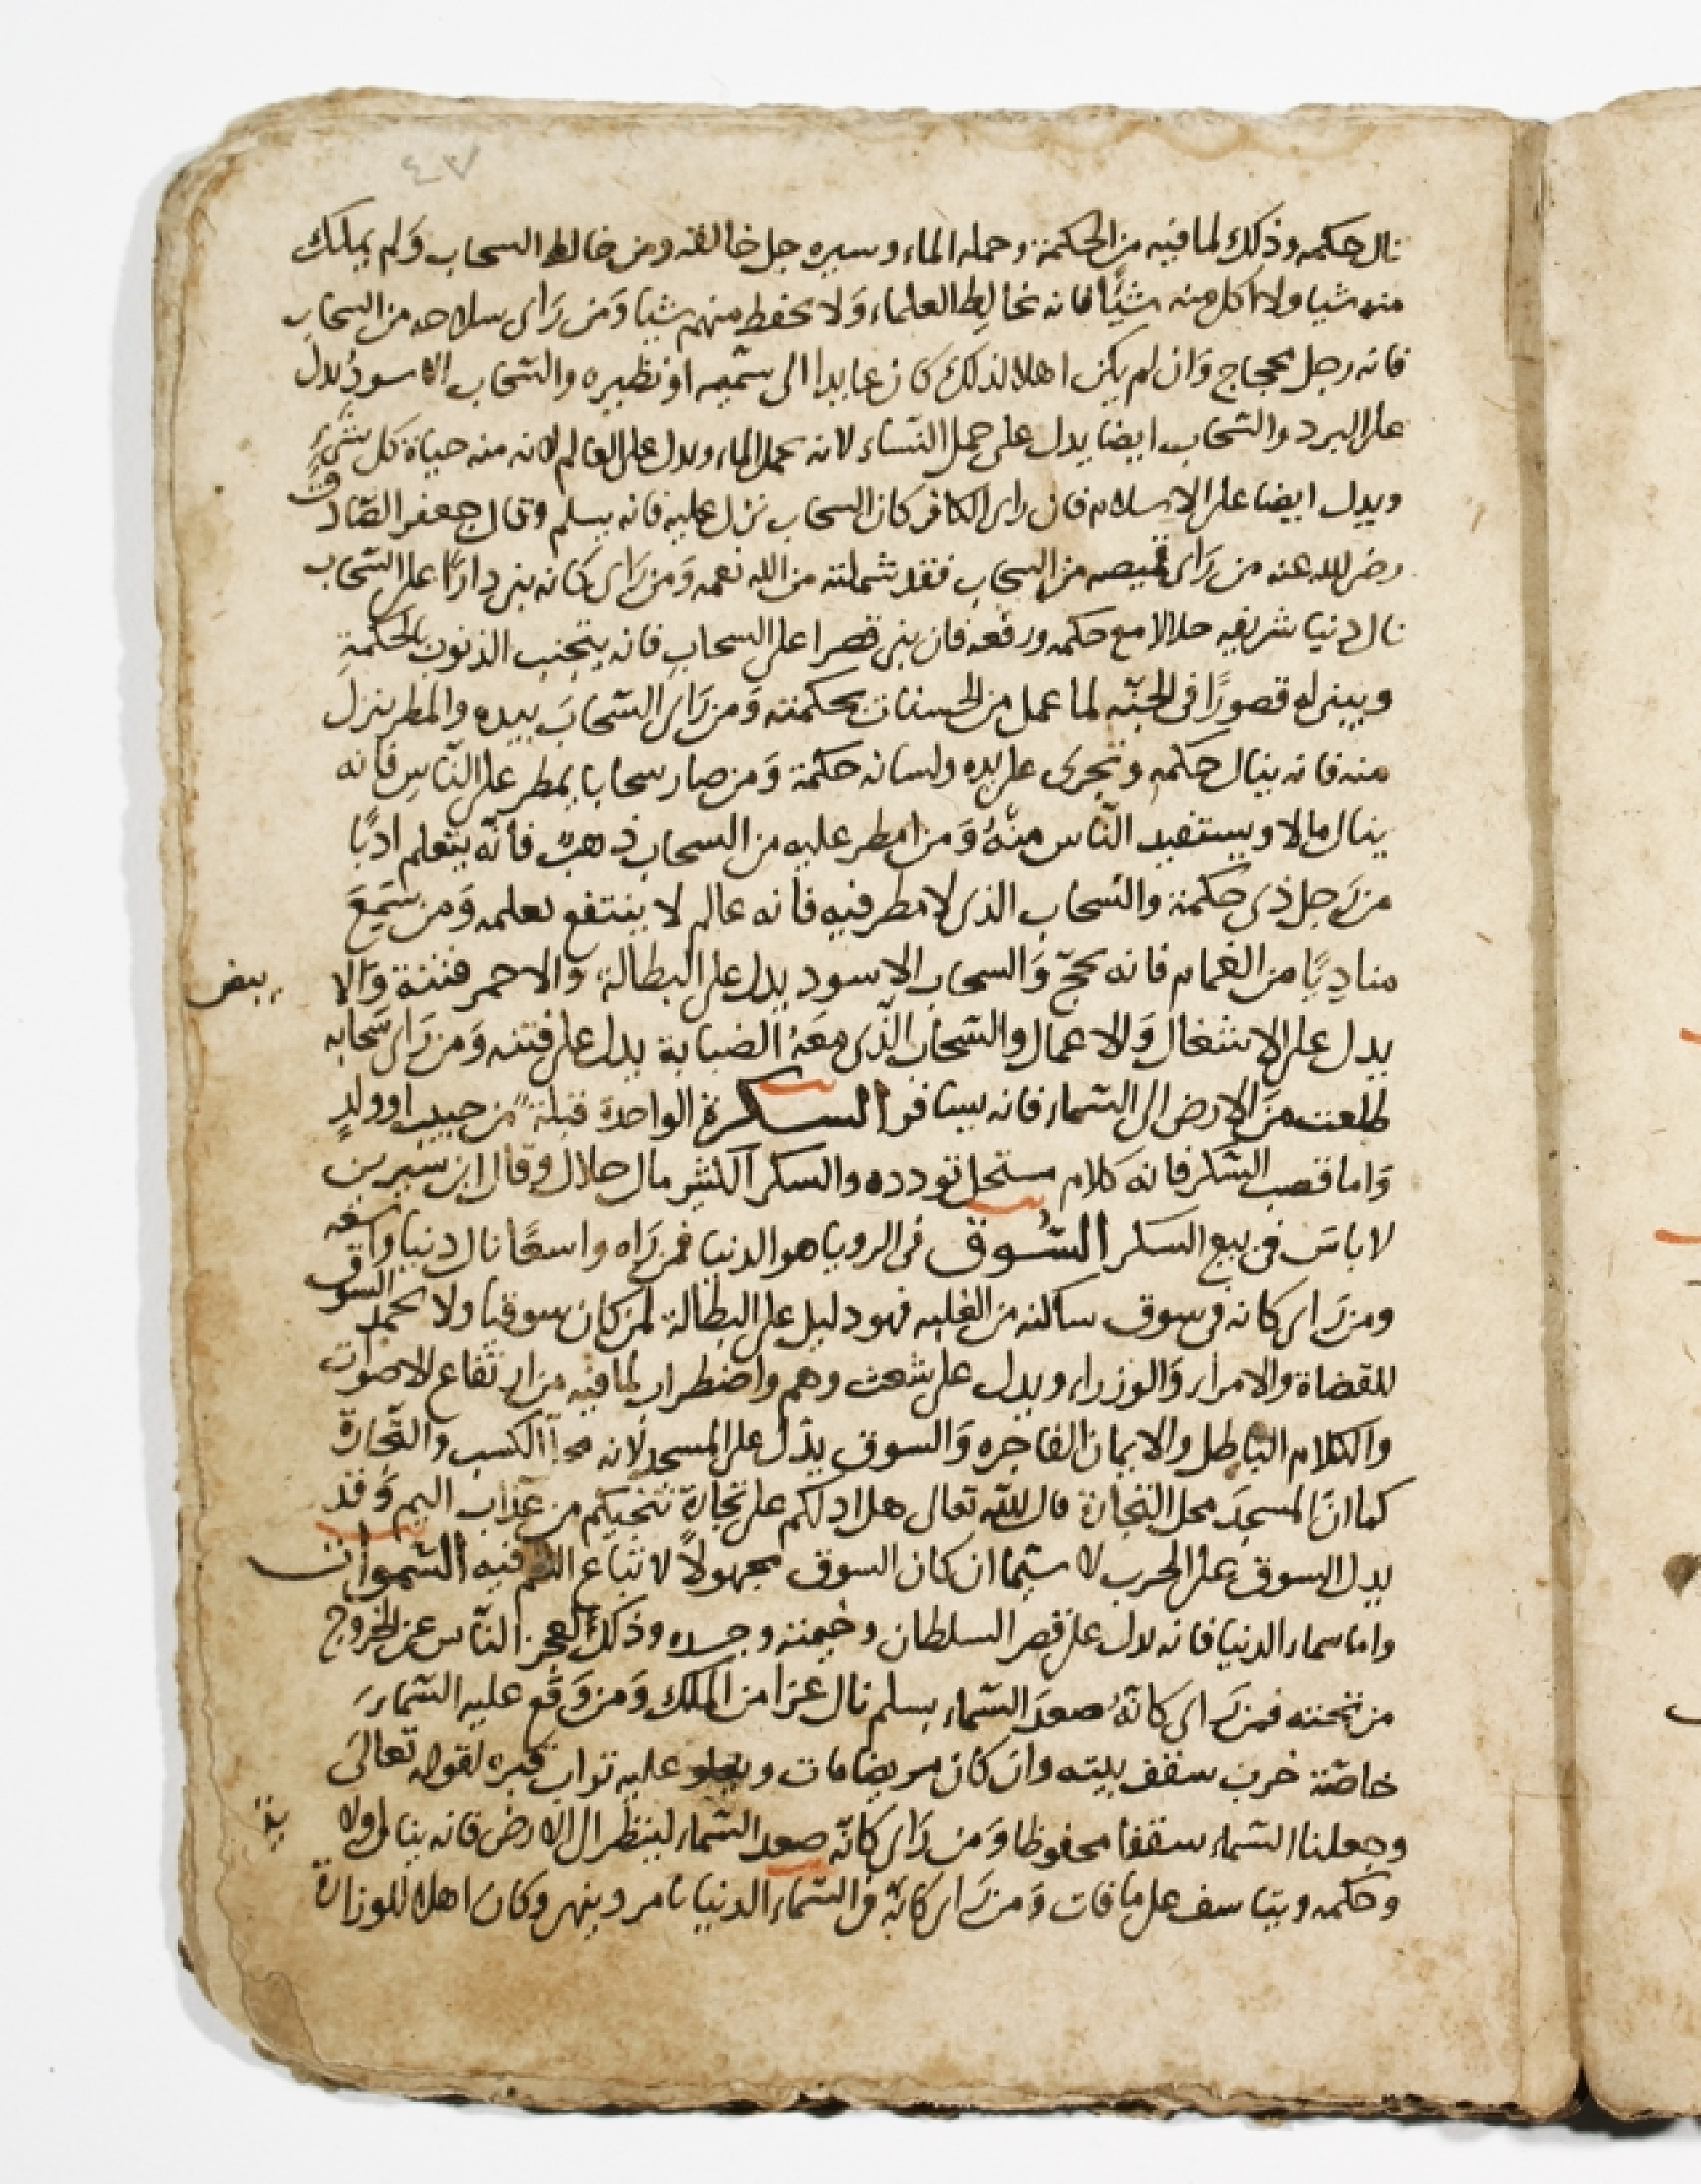 ٤٧
نال حكمه وذلك لما فيه من الحكمة وحمله الماء وسيره جل خالقه ومن خالط السحاب وَلم يملك
منه شيا ولا اكل منه شيًا فانه يخالِط العلماء وَلا يحفظ منهم شيا وَمَن رَاى سلاحه من السحاب
فانه رجل محجاج وَان لم يكن اهلا لذلك كان عايدا الى سميه او نظيره والسّحاب الاسود يدل
على البرد والسّحاب ايضا يدل على حمل النّساء لانه يحمل الماء ويدل على العالم لانه منه حياة كل شيءٍ
ويدل ايضا على الاسلام فان راى الكافر كان السحاب نزل عليه فانه يسلم وقال جعفر الصّادق
رضى الله عنه من رَاى قميصه من السحاب فقد شملته من الله نعمه وَمن رَاى كانه بنى دارًا على السّحاب
نال دنيا شريفه حلالا مع حكمه ورفعه فان بنى قصرا على السحاب فانه يتجنب الذنوب بالحكمةِ
ويبنى له قصورًا فى الجنّه لما عمل من الحسنات بحكمته وَمن رَاى السّحابَ بيده والمطر ينزل
منه فانه ينال حكمه وتجرى على يده ولسانه حكمة وَمن صار سحابا يمطر على النّاس فانه
ينال مالا ويستفيد النّاس منهُ وَمن امطر عليه من السحاب ذهبٌ فانّه يتعلم ادبًا
من رَجل ذى حكمة والسّحاب الذى لا مطر فيه فانه عالم لا ينتفع بعلمه وَمن سَمِعَ
مناديًا من الغمام فانه يحجّ وَالسحاب الاسود يدل على البطالة، والاحمر فتنة وَالا
بيض
يدل على الاشغال وَالاعمال والسّحاب الّذى معَهُ الضبابة يدل على فتنه وَمن رَاى سَحابه
طلعت منَ الارض الى السّماء فانه يسافر السكرة الواحدة قبلة من حبيب او ولدٍ
وَاما قصب السّكر فانه كلام مستحل تودده والسكر الكثير مال حلال وقال ابن سيرين
لا باسَ فى بيع السكر السّوق فى الرويا هو الدنيا فمن رَاه واسعًا نال دنيا واسعه
ومن رَاى كانه فى سوق ساكنه من الغلبه فهو دليل على البطالة لمن كان سوقيا ولا يحمد السوق
للقضاة والامراء وَالوزراء ويدل على شعث وهم واضطراب لما فيه من ارتفاع الاصوات
والكلام الباطل والايمان الفاجره وَالسوق يدّل على المسجد لانه محل الكسب والتّجارة
كما انّ المسجدَ محل التجارة قال الله تعالى هل ادلكم على تجارة تنجيكم من عذاب اليم وَقد
يدل السوق على الحرب لا سيّما ان كان السوق مجهولاً لا تباع فيه السّموات
واما سماء الدنيا فانه يدل على قصر السلطان وخيمته وجسده وذلك لعجز النّاس عن الخروج
من تحته فمن رَاى كانّهُ صعدَ السّماء بسلم نال عزا من الملك وَمن وَقع عليه السّماءَ
خاصّة خرب سقف بيته وان كان مريضا مات وعليه تراب قبره لقوله تعالى
وجعلنا السّماء سقفا محفوظا وَمَن رَاى كانّه صعد السّماء لينظر الى الارض فانه ينال ولا
ية
وحكمه ويتاسف على ما فات وَمن رَاى كانّه فى السّماء الدنيا يامر وينهى وكان اهلا للوزارة